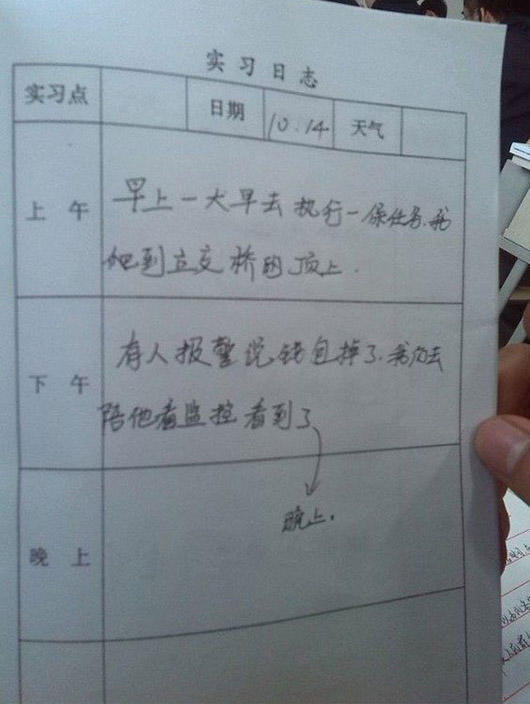 实习日志
实习点 日期 10.14 天气
上午 早上一大早去执行一保任务.我
爬到立交桥的顶上.
下午 有人报警说钱包掉了.我们去
陪他看监控看到了
晚上.
晚上